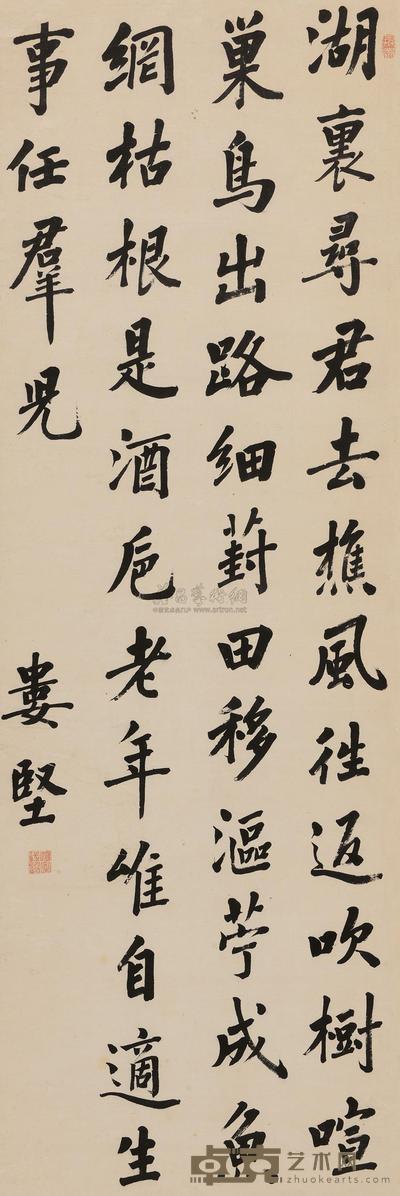 湖裏尋君去樵風徃返吹樹喧
巢鳥出路細葑田移漚苧成魚
網枯根是酒巵老年唯自適生
事任羣兒
婁堅
www.artron.net
艺术网
zhuokearts.com